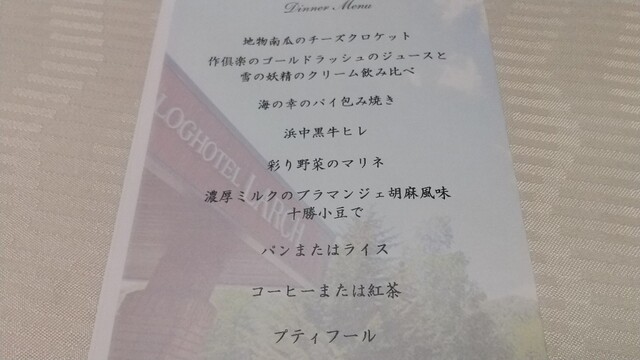 Dinner Menu
地物南瓜のチーズクロケット
作倶楽のゴールドラッシュのジュースと
雪の妖精のクリーム飲み比べ
海の幸のパイ包み焼き
浜中黒牛ヒレ
彩り野菜のマリネ
濃厚ミルクのブラマンジェ胡麻風味
十勝小豆で
パンまたはライス
コーヒーまたは紅茶
プティフール
LOGHOTEL LARCH